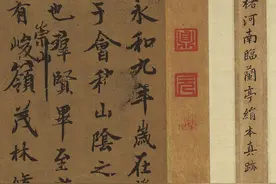 褚河南臨蘭亭絹本真跡
永和九年歲在
于會稽山陰之
也羣賢畢至
崇山
有峻嶺茂林脩